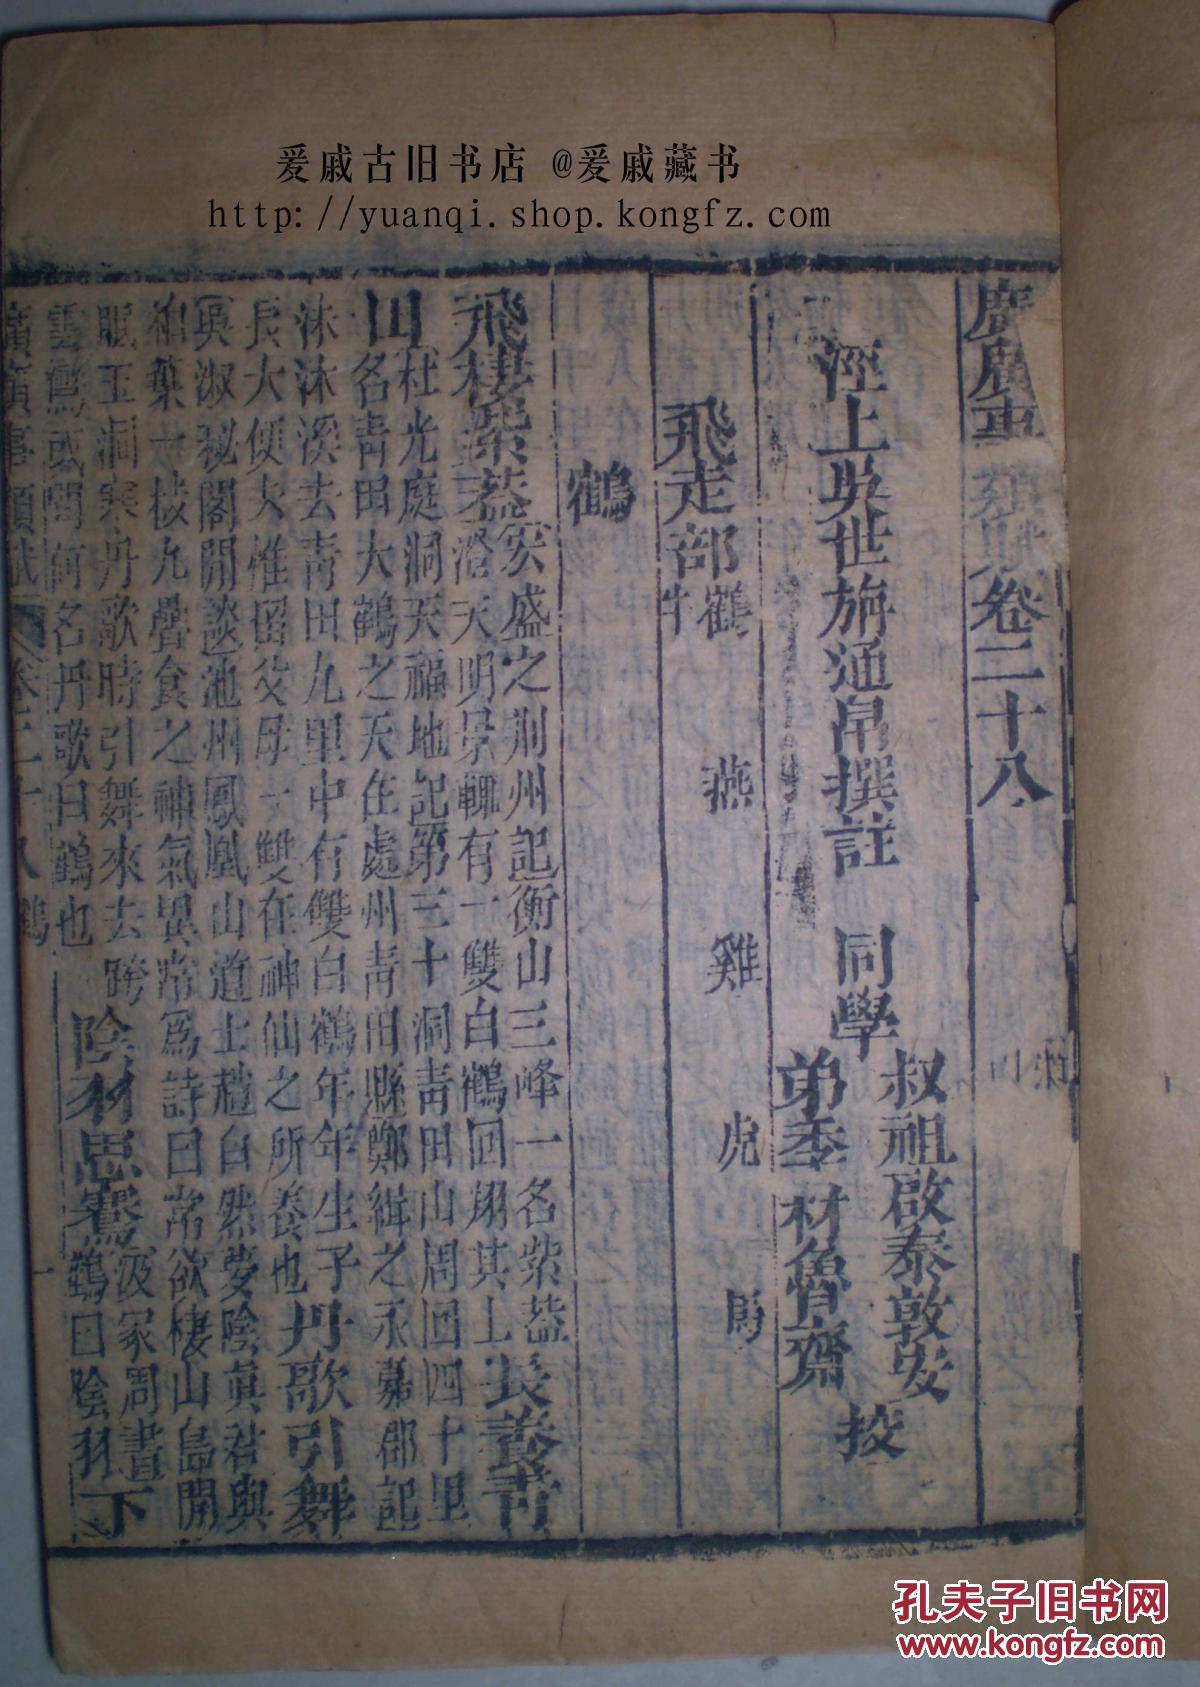 爰戚古旧书店 @爰戚藏书
http://yuanqi.shop.kongfz.com
廣廣事類賦卷二十八
涇上吳世旃通帛撰註 同學 叔祖啟泰敦安 弟季材魯齋 挍
飛走部 鶴 燕 雞 虎 馬 牛
鶴
飛棲紫蓋 宏盛之荆州記衡山三峰一名紫蓋
澄天明景輒有一雙白鶴回翔其上 長養青
田 杜光庭洞天福地記第三十洞青田山周回四十里
名青田大鶴之天在處州青田縣鄭緝之永嘉郡記
沐沐溪去青田九里中有雙白鶴年年生子
長大便去惟留父母一雙在神仙之所養也 丹歌引舞
吳淑秘閣閒談池州鳳凰山道士趙自然夢陰眞君與
柏葉一枝九疊食之神氣異常爲詩曰常欲棲山島閒
眠玉洞寒丹歌時引舞來去跨
雲鸞或問何名丹歌曰鶴也 陰羽思鶱 汲冢周書
鶴曰陰羽 下
廣廣事類賦 卷二十八 鶴 一
孔夫子旧书网
www.kongfz.com